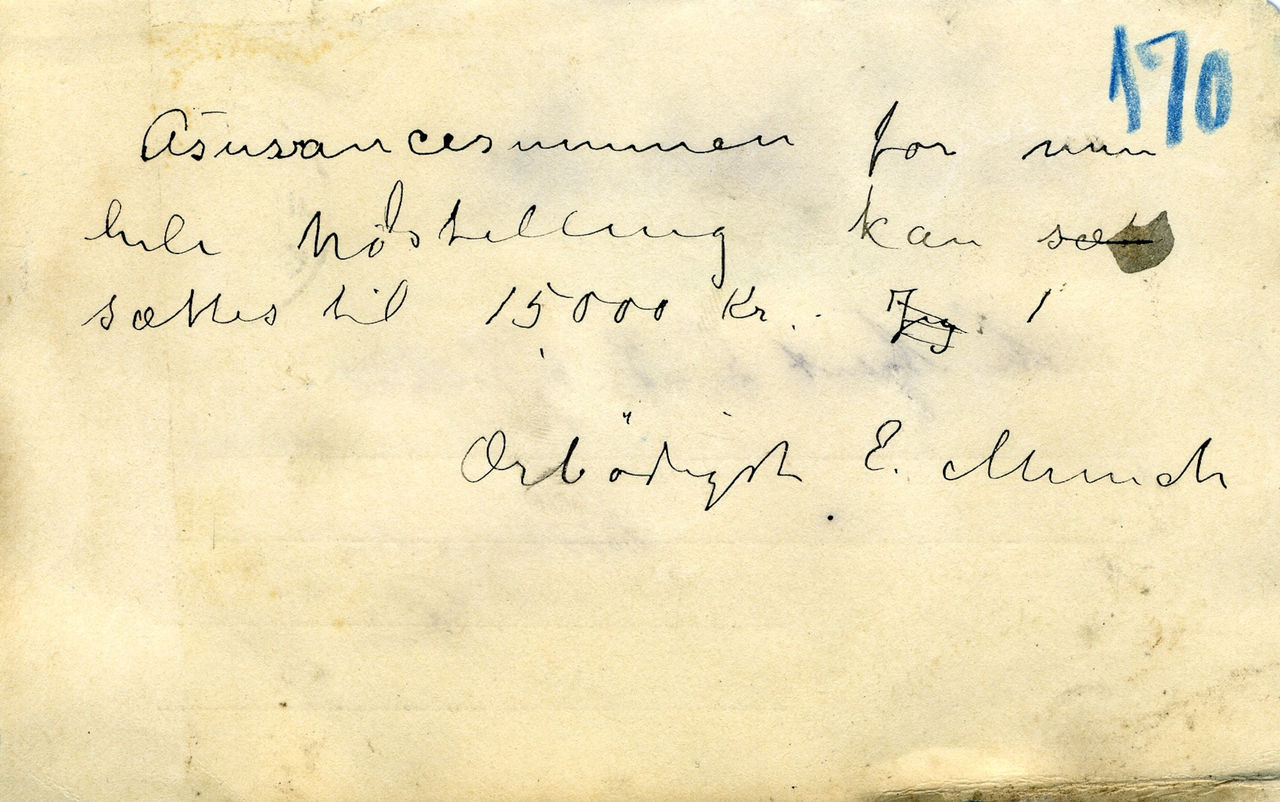 170
Asuransesummen for min
hele Udstelling kan sæt
sættes til 15000 Kr. Jeg 1
Ærbödigst E. Munch